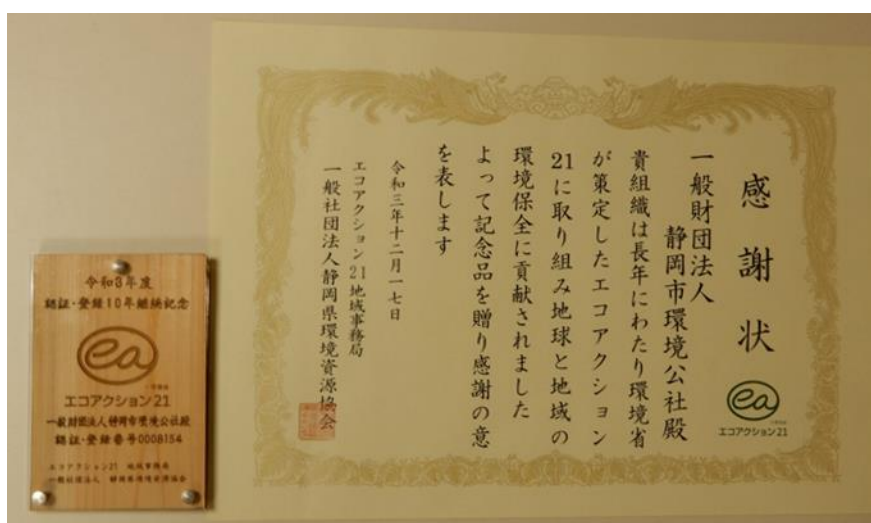 感謝状
一般財団法人
静岡市環境公社殿
貴組織は長年にわたり環境省
が策定したエコアクション
21に取り組み地球と地域の
環境保全に貢献されました
よって記念品を贈り感謝の意
を表します
令和三年十二月一七日
エコアクション21地域事務局
一般社団法人静岡県環境資源協会
ea
エコアクション21
令和3年度
認証・登録10年継続記念
ea
エコアクション21
一般財団法人静岡市環境公社殿
認証・登録番号0008154
エコアクション21 地域事務局
一般社団法人 静岡県環境資源協会